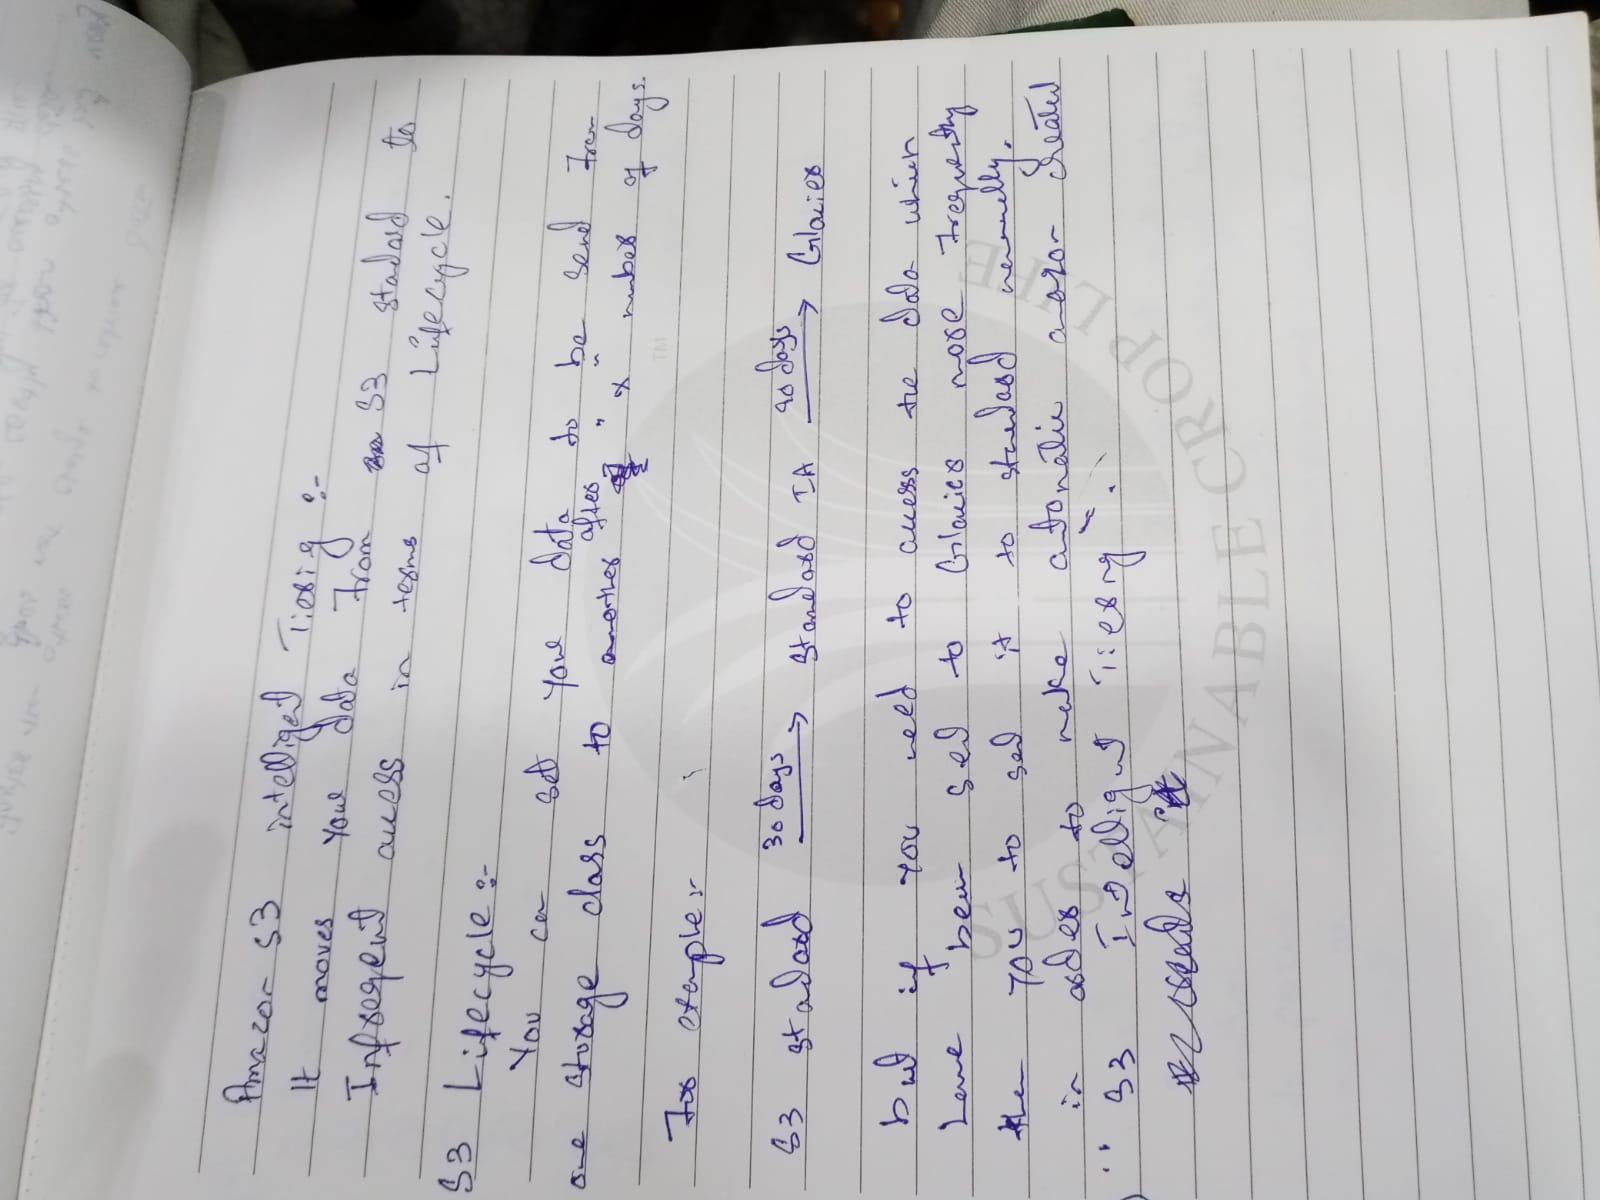 Amazon S3 intelligent Tiesig :-
It moves your data from S3 standard to
Infrequent access in terms of Lifecycle.
S3 Lifecycle :-
You can set your data to be send from
one storage class to another after "x" number of days.
For example :-
S3 standard 30 days → standard IA 90 days → Glacier
but if you need to access the data which
have been sed to Glacier more frequently
then you to sed it to standard mannually.
in order to make automatic amazon created
" S3 Intelligent Tiering " .
SUSTAINABLE CROP LIFE
TM